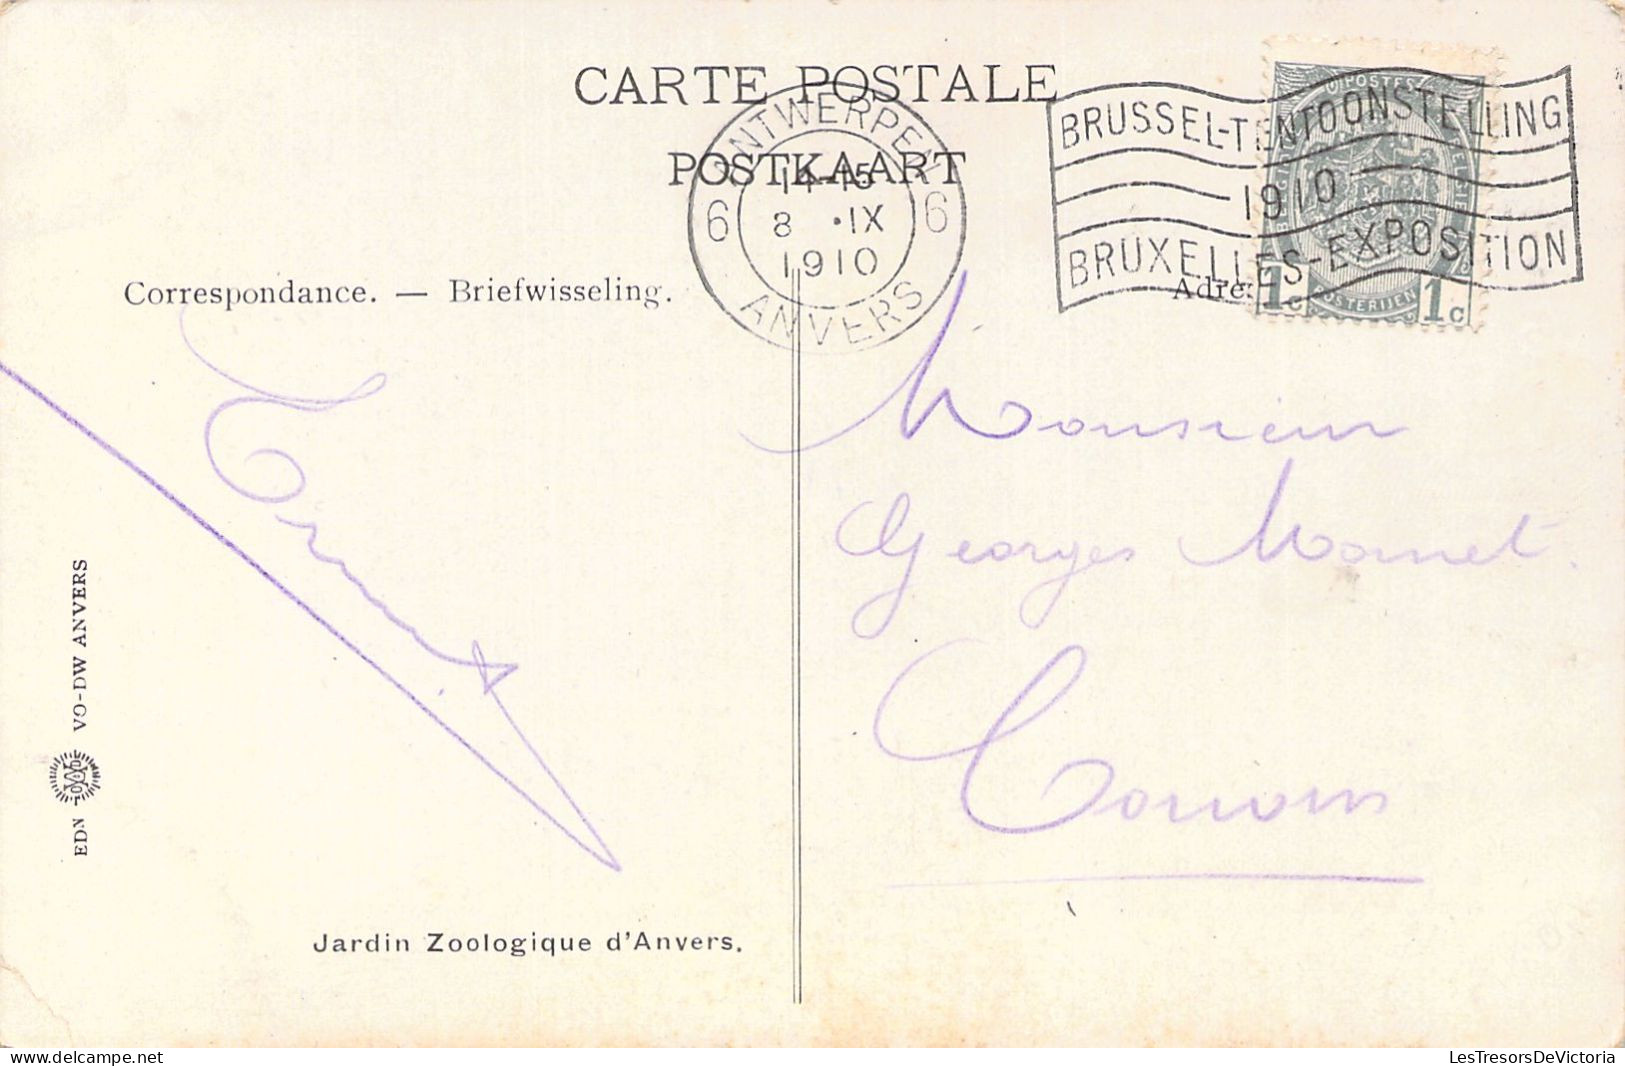 CARTE POSTALE
POSTKAART
ANTWERPEN
14-15
6 8 · IX 6
1910
ANVERS
BRUSSEL-TENTOONSTELLING
1910
BRUXELLES-EXPOSITION
POSTERIJEN
1c 1c
Correspondance. — Briefwisseling.
Adre
Monsieur
Georges
Couvin
EDN VO-DW ANVERS
Jardin Zoologique d'Anvers.
LesTresorsDeVictoria
delcampe.net